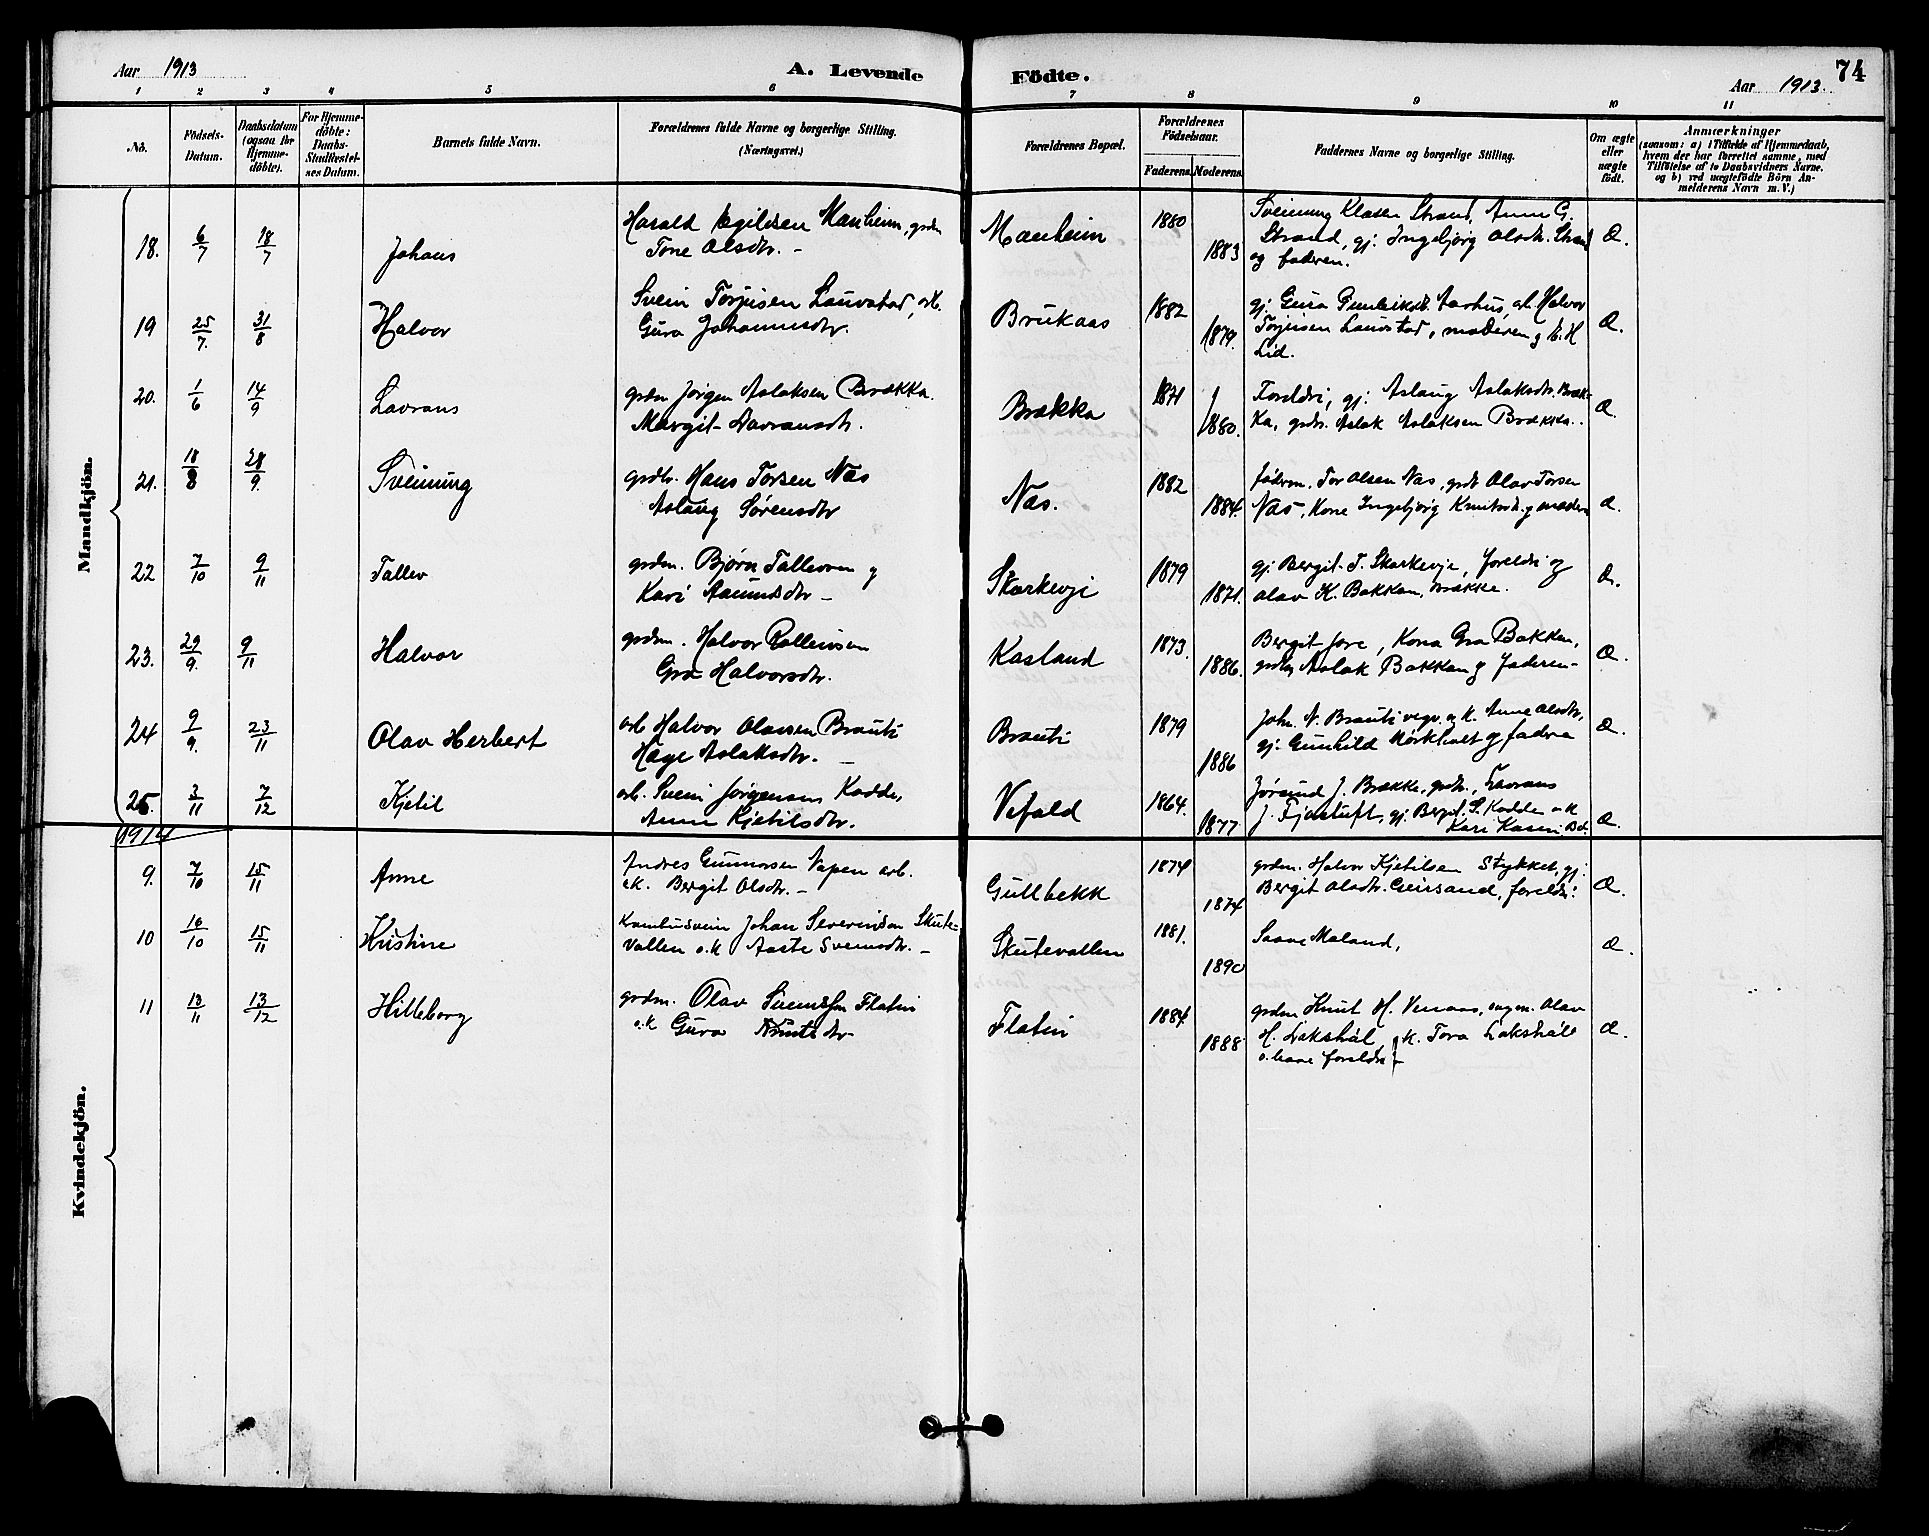 Aar 1913
A. Levende
Födte.
Aar 1913.
74
1 2 3 4 5 6 7 8 9 10 11
No.
Födsels-
Datum.
Daabsdatum
(ogsaa for
Hjemme-
döbte).
For Hjemme-
döbte:
Daabs-
Stadfæstel-
ses Datum.
Barnets fulde Navn.
Forældrenes fulde Navne og borgerlige Stilling.
(Næringsvei.)
Forældrenes Bopæl.
Forældrenes
Födselsaar.
Faderens. Moderens.
Faddernes Navne og borgerlige Stilling.
Om ægte
eller
uægte
födt.
Anmærkninger
(saasom: a) i Tilfælde af Hjemmedaab,
hvem der har forrettet samme, med
Tilföielse af to Daabsvidners Navne,
og b) ved uægtefödte Börn An-
melderens Navn m. V.)
Mandkjön.
18. 6/7 18/7 Johans
Harald Egilsen Manheim, grdm
Tone Olsdtr. -
Manheim 1880 1883
Sveinung Klasen Strand, Anne G.
Strand, gj. Ingebjørg Olsdtr. Strand
og faderen.
Æ.
19 25/7. 31/8 Halvor
Svein Torjusen Lauvstad, arb.
Guro Johannesdtr.
Brukaas 1882 1879.
gj. Guro Aarhus, arb. Halvor
Torjusen Lauvstad, moderen g E. H
Lid.
Æ.
20. 1/6 14/9 Lavrans
grdm Jørgen Aslaksen Brækka.
Margit Lavransdtr.
Brækka 1871 1880.
Foreldri, gj. Aslaug Aslaksdtr. Bræk-
ka, grdr. Aslak Aslaksen Brækka.
Æ.
21. 18/8 28/9. Sveinung
grdbr. Hans Torsen Næs
Aslaug Sørensdtr
Næs. 1882 1884.
føderm. Tor Olsen Næs, grdr Olav Torsen
Næs, Kone Ingebjørg Knutsd. g moderen
Æ.
22 7/10 9/11 Tallev
grdm. Bjørn Tallevsen g
Kari Aamundsdtr -
Skarkevje 1879 1871.
gj. Bergit T. Skarkevje, foreldri og
Olav K. Bakkan, Brække.
Æ.
23. 29/9. 9/11 Halvor
grdm. Halvor Rolleivsen
Gro Halvorsdtr.
Kasland 1873. 1886.
Bergit Jore, Kona Gro Bakken,
Aslak Bakkan g Faderen-
Æ.
24 9/9. 23/11 Olav Herbert
arb Halvor Olavsen Brauti
Hæge Aslaksdtr. -
Brauti 1879 1886
John N. Brauti vegv. o. k. Anne Olsdtr,
gj. Gunhild Mørkholt og fadra
Æ.
25. 3/11 7/12 Kjetil
arb. Svein Jørgensen Kodde,
Anne Kjetilsdtr.
Vefald 1864. 1877.
Jørund J. Brække, grdr., Lavrans
J. Fjostuft, gj. Bergit S. Kodde o. k
Kari Kasin Bø.
Æ.
1914
Kvindekjön.
9. 7/10 15/11 Anne
Andres Gunnarsen Vapen arb.
o.k. Bergit Olsdtr. -
Gullbekk 1874 1874
grdm. Halvor Kjetilsen Stykket, gj.
Bergit Olsdtr. Geirsand, foreldri.
Æ.
10 16/10 15/11 Kristine
Krambusvein Johan Severinson Skute-
vallen o.k Aaste Sveinsdtr. -
Skutevallen 1881. 1890
Saave Maland,
Æ.
11 13/11 13/12 Hilleborg
grdm. Olav Sveinsson Flatin
o.k Guro Knutsdtr
Flatin 1884. 1888
grdm Knut H. Venaas, ungm. Olav
H. Lakshøl, g k. Tora Lakshøl
o. baae foreldri -
Æ.